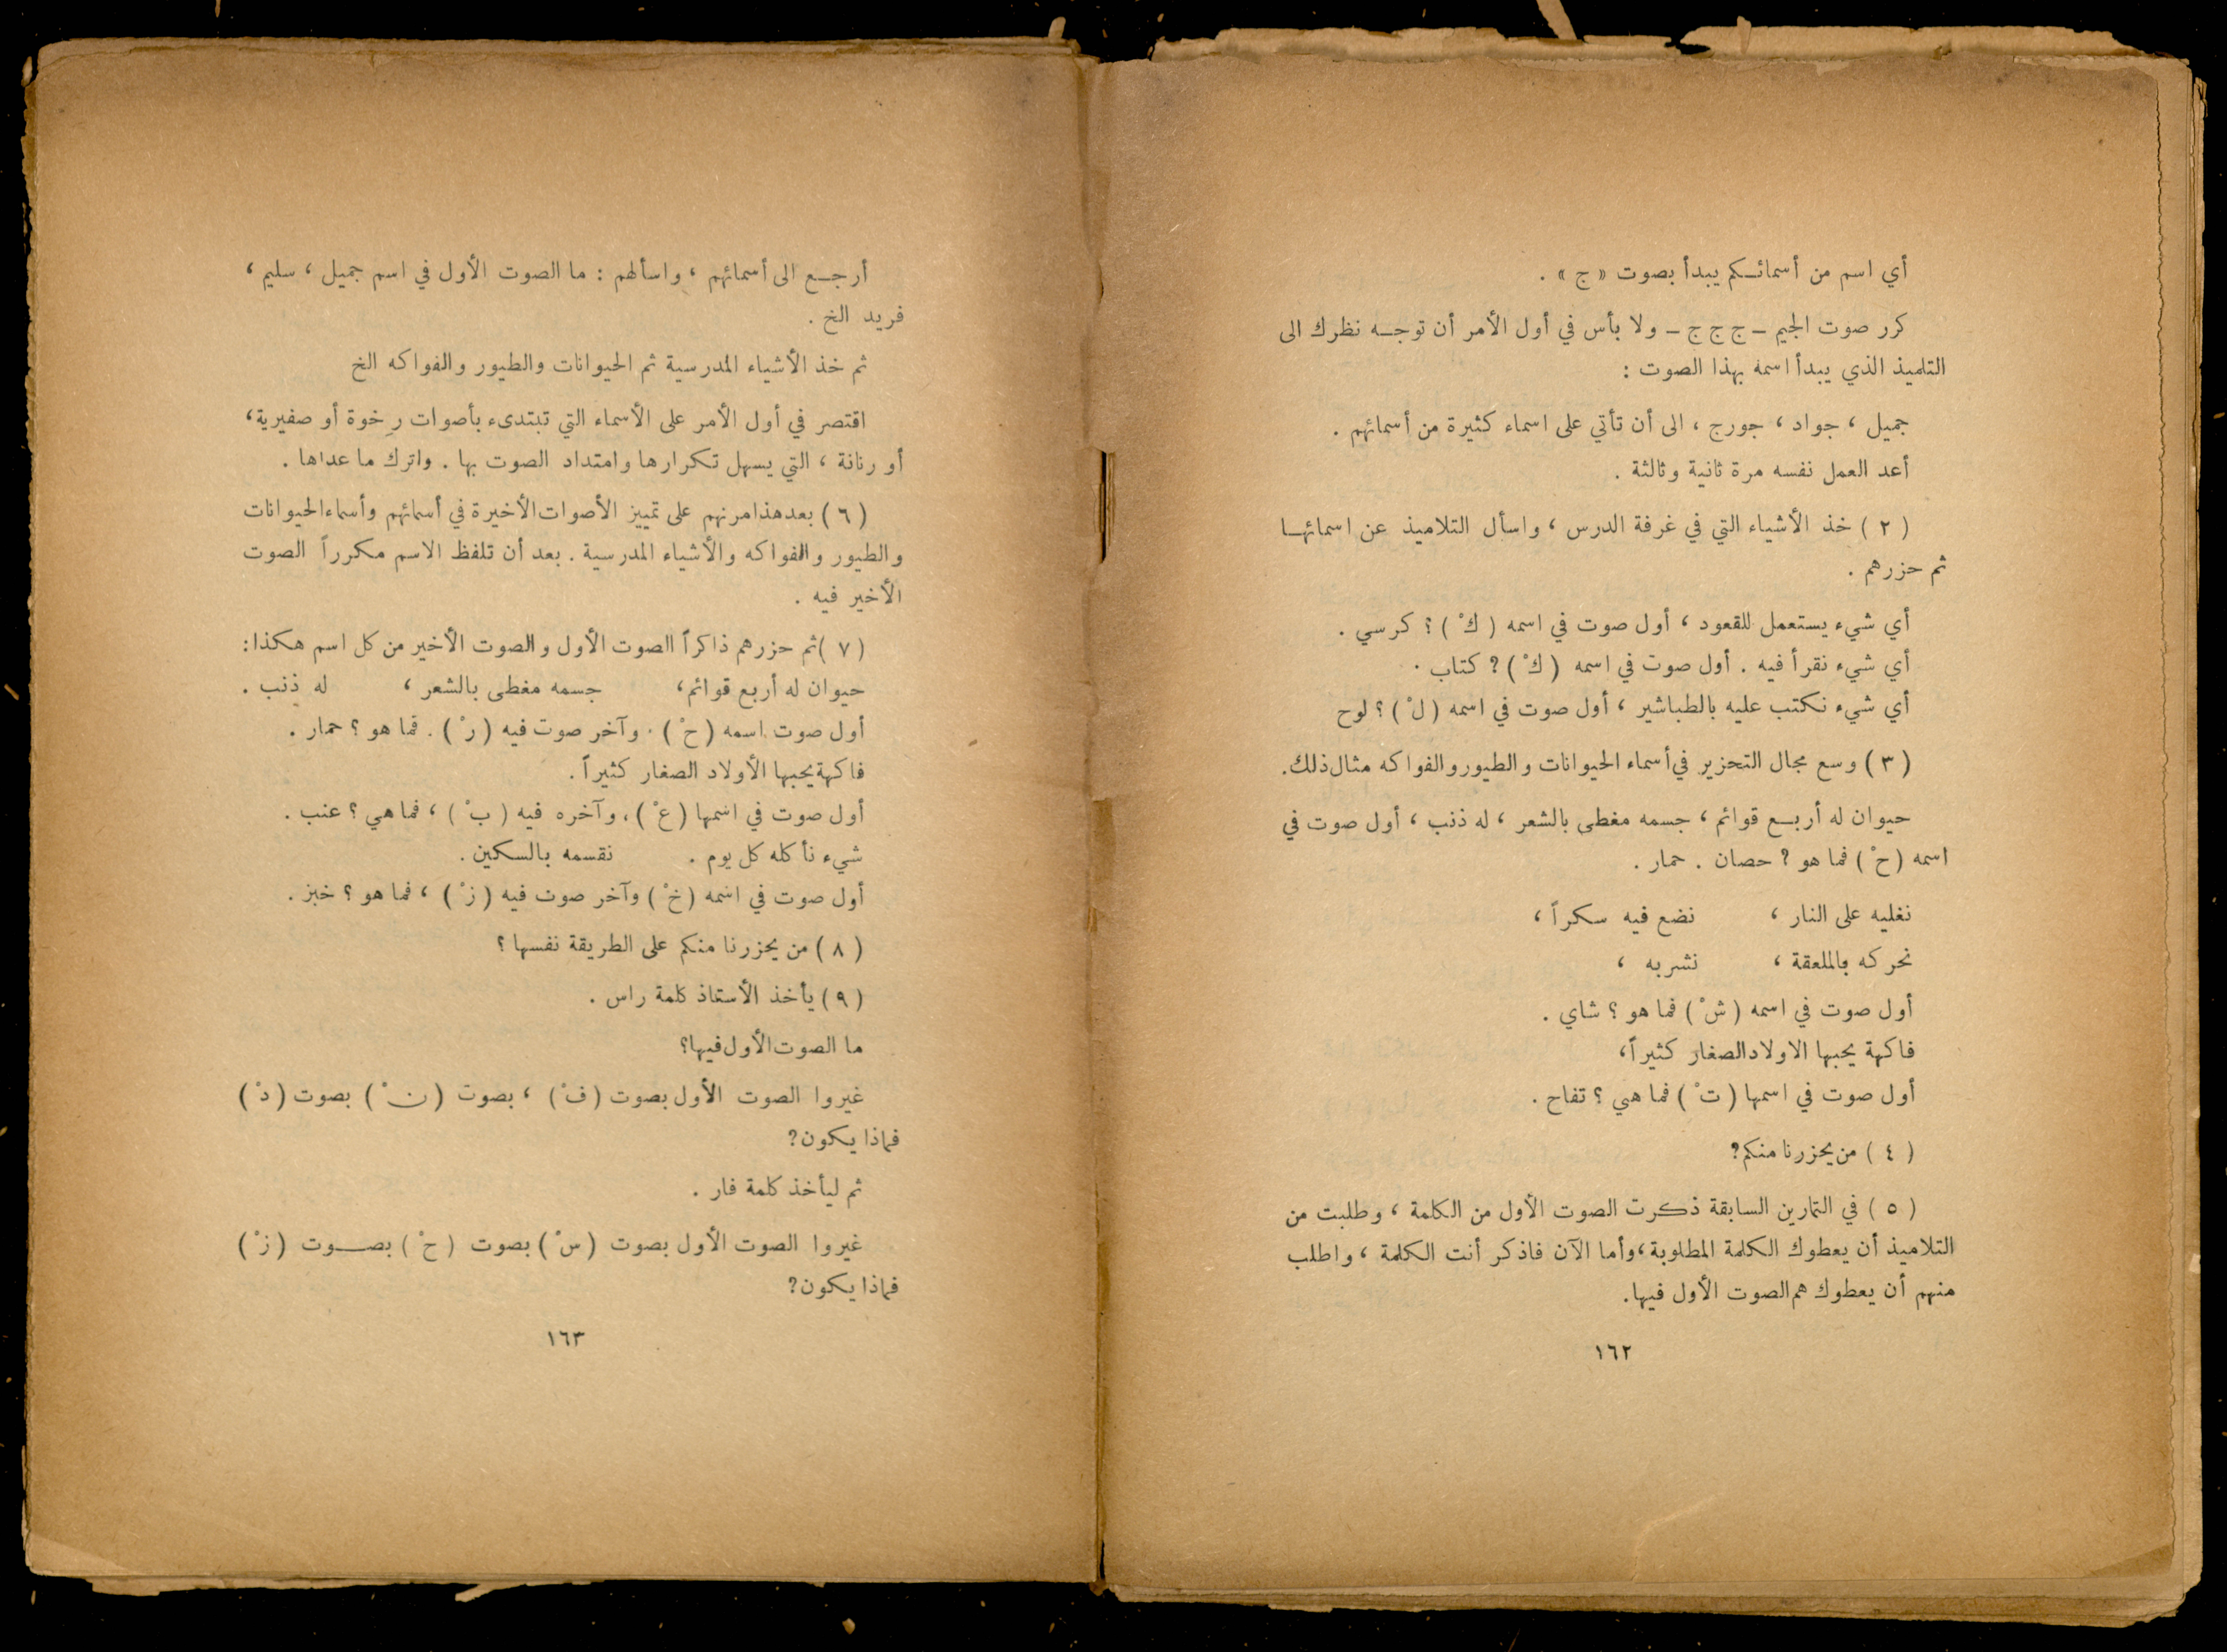 أي اسم من أسمائكم يبدأ بصوت « ج » .
كرر صوت الجيم – ج ج ج – ولا بأس في أول الأمر أن توجه نظرك الى
التلميذ الذي يبدأ اسمه بهذا الصوت :
جميل ، جواد ، جورج ، الى أن تأتي على اسماء كثيرة من أسمائهم .
أعد العمل نفسه مرة ثانية وثالثة .
( ٢ ) خذ الأشياء التي في غرفة الدرس ، واسأل التلاميذ عن اسمائها
ثم حزرهم .
أي شيء يستعمل للقعود ، أول صوت في اسمه ( كْ ) ؟ كرسي .
أي شيء نقرأ فيه . أول صوت في اسمه ( كْ ) ? كتاب .
أي شيء نكتب عليه بالطباشير ، أول صوت في اسمه ( لْ ) ؟ لوح
( ٣ ) وسع مجال التحزير في أسماء الحيوانات والطيور والفواكه مثال ذلك.
حيوان له أربع قوائم ، جسمه مغطى بالشعر ، له ذنب ، أول صوت في
اسمه ( حْ ) فما هو ? حصان . حمار .
نغليه على النار ، نضع فيه سكراً ،
نحركه بالملعقة ، نشربه ،
أول صوت في اسمه ( شْ ) فما هو ؟ شاي .
فاكهة يحبها الاولاد الصغار كثيراً،
أول صوت في اسمها ( تْ ) فما هي ؟ تفاح .
( ٤ ) من يحزرنا منكم?
( ٥ ) في التمارين السابقة ذكرت الصوت الأول من الكلمة ، وطلبت من
التلاميذ أن يعطوك الكلمة المطلوبة ، وأما الآن فاذكر أنت الكلمة ، واطلب
منهم أن يعطوك هم الصوت الأول فيها.
١٦٢
أرجع الى أسمائهم ، واسألهم : ما الصوت الأول في اسم جميل ، سليم ،
فريد الخ .
ثم خذ الأشياء المدرسية ثم الحيوانات والطيور والفواكه الخ
اقتصر في أول الأمر على الأسماء التي تبتدىء بأصوات رِخوة أو صفيرية،
أو رنانة ، التي يسهل تكرارها وامتداد الصوت بها . واترك ما عداها .
( ٦ ) بعد هذا مرنهم على تمييز الأصوات الأخيرة في أسمائهم وأسماء الحيوانات
والطيور والفواكه والأشياء المدرسية . بعد أن تلفظ الاسم مكرراً الصوت
الأخير فيه .
( ٧ ) ثم حزرهم ذاكراً الصوت الأول والصوت الأخير من كل اسم هكذا :
حيوان له أربع قوائم، جسمه مغطى بالشعر ، له ذنب .
أول صوت اسمه ( حْ ) . وآخر صوت فيه ( رْ ) . فما هو ؟ حمار .
فاكهة يحبها الأولاد الصغار كثيراً .
أول صوت في اسمها ( عْ ) ، وآخره فيه ( بْ ) ، فما هي ؟ عنب .
شيء نأكله كل يوم . نقسمه بالسكين .
أول صوت في اسمه ( خْ ) وآخر صوت فيه ( زْ ) ، فما هو ؟ خبز .
( ٨ ) من يحزرنا منكم على الطريقة نفسها ؟
( ٩ ) يأخذ الأستاذ كلمة راس .
ما الصوت الأول فيها؟
غيروا الصوت الأول بصوت ( فْ ) ، بصوت ( نْ ) بصوت ( دْ )
فماذا يكون?
ثم ليأخذ كلمة فار .
غيروا الصوت الأول بصوت ( سْ ) بصوت ( حْ ) بصوت ( زْ )
فماذا يكون?
١٦٣